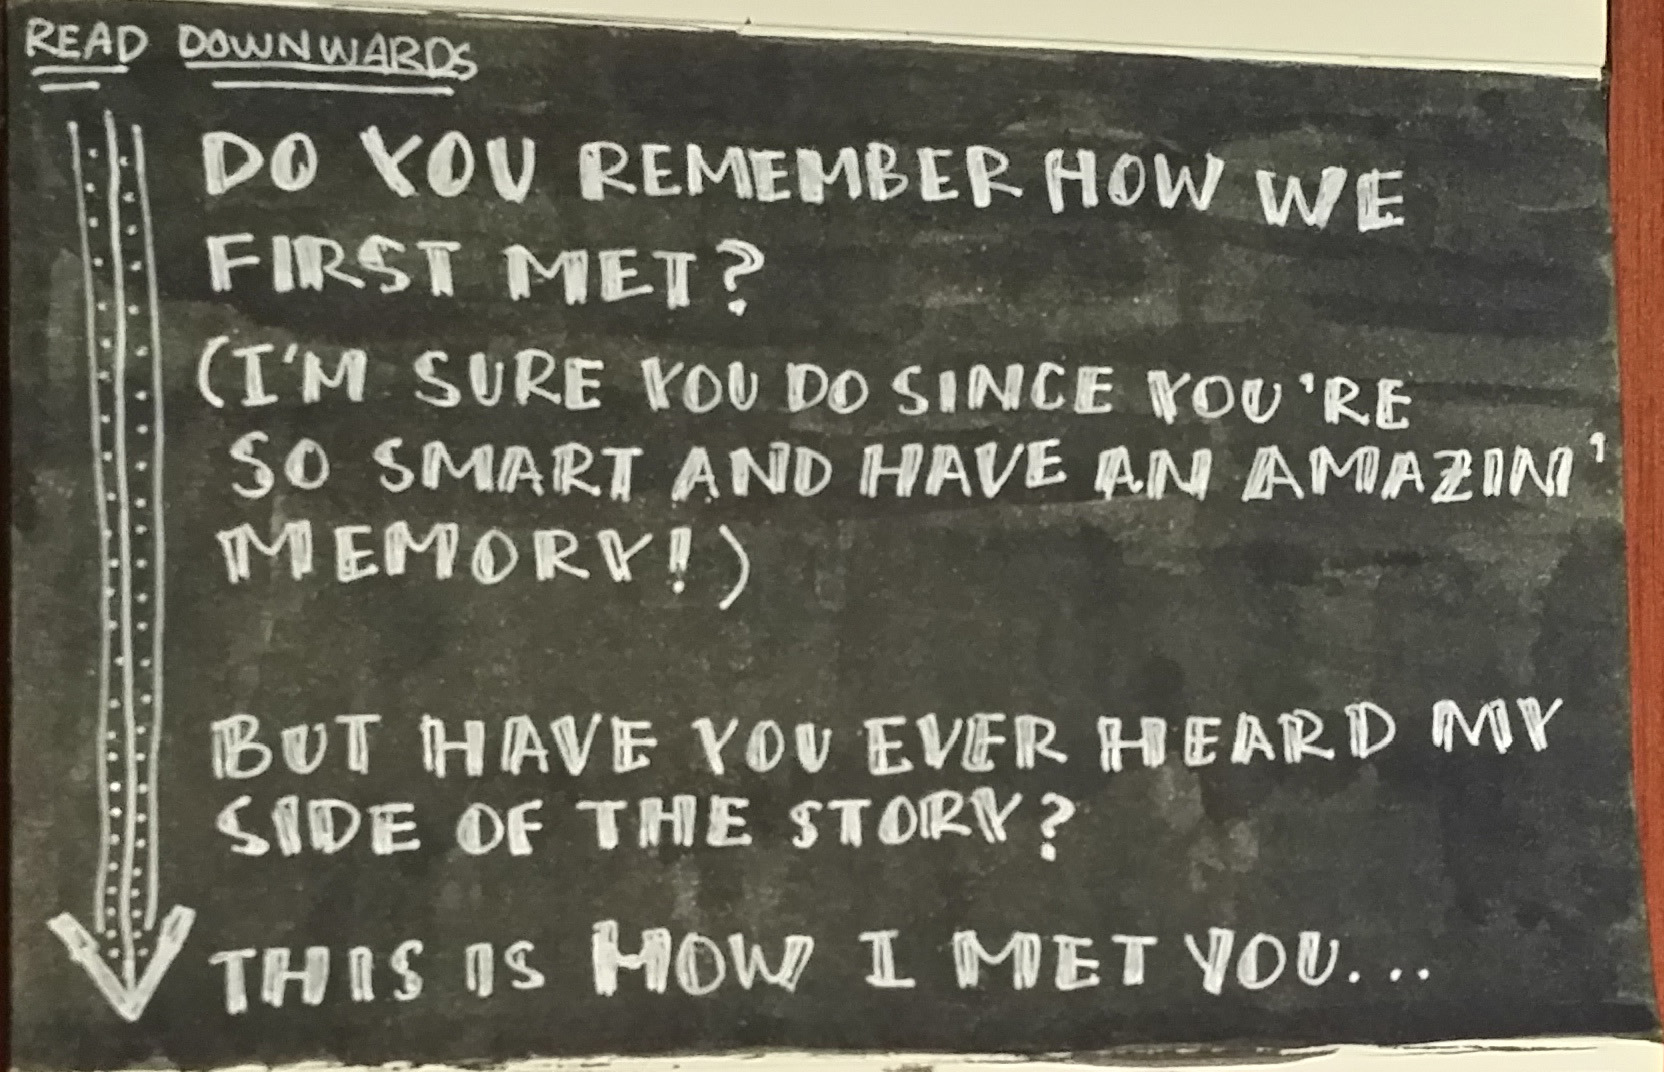 READ DOWNWARDS
DO YOU REMEMBER HOW WE
FIRST MET?
(I'M SURE YOU DO SINCE YOU'RE
SO SMART AND HAVE AN AMAZIN'
MEMORY!)
BUT HAVE YOU EVER HEARD MY
SIDE OF THE STORY?
THIS IS HOW I MET YOU...